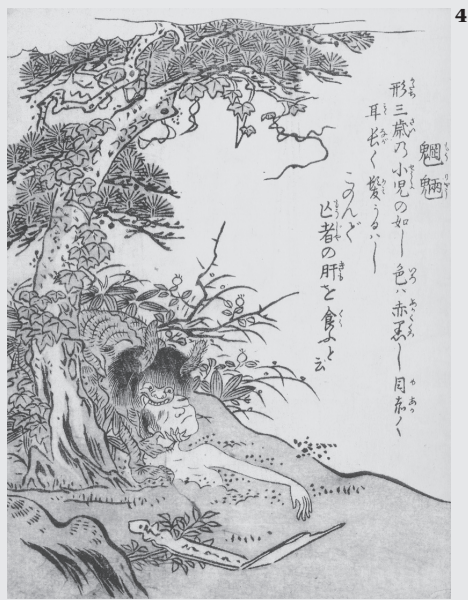 4
魍魎
形三歳乃小児の如し色ハ赤黒し目赤く
耳長く髪うるハし
このんで
亡者の肝を食ふと云